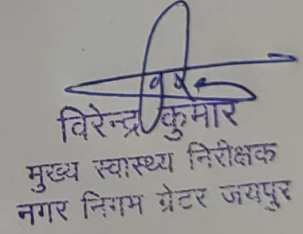 विरेन्द्र कुमार
मुख्य स्वास्थ्य निरीक्षक
नगर निगम ग्रेटर जयपुर